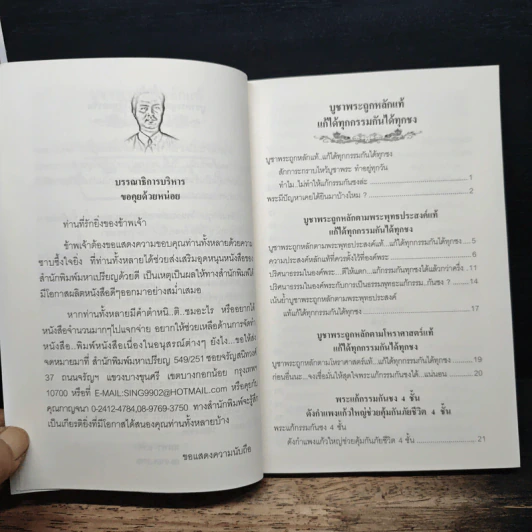 บรรณาธิการบริหาร
ขอคุยด้วยหน่อย
ท่านที่รักยิ่งของข้าพเจ้า
ข้าพเจ้าต้องขอแสดงความขอบคุณท่านทั้งหลายด้วยความ
ซาบซึ้งใจยิ่ง ที่ท่านทั้งหลายได้ช่วยส่งเสริมอุดหนุนหนังสือของ
สำนักพิมพ์มหาเปรียญด้วยดี เป็นเหตุเป็นผลให้ทางสำนักพิมพ์ได้
มีโอกาสผลิตหนังสือดีๆออกมาอย่างสม่ำเสมอ
หากท่านทั้งหลายมีคำตำหนิ..ติ..ชมอะไร หรืออยากได้
หนังสือจำนวนมากๆไปแจกจ่าย อยากให้ช่วยเหลือด้านการจัดทำ
หนังสือ..พิมพ์หนังสือเนื่องในอนุสรณ์ต่างๆ ยังไง...ขอให้ส่ง
จดหมายมาที่ สำนักพิมพ์มหาเปรียญ 549/251 ซอยจรัญสนิทวงศ์
37 ถนนจรัญฯ แขวงบางขุนศรี เขตบางกอกน้อย กรุงเทพฯ
10700 หรือที่ E-MAIL:SING9902@HOTMAIL.COM หรือคุยกับ
คุณกาญจนา 0-2412-4784,08-9769-3750. ทางสำนักพิมพ์จะรู้สึก
เป็นเกียรติยิ่งที่มีโอกาสได้สนองคุณท่านทั้งหลายบ้าง
ขอแสดงความนับถือ
บูชาพระถูกหลักแท้
แก้ได้ทุกกรรมกันได้ทุกชง
บูชาพระถูกหลักแท้..แก้ได้ทุกกรรมกันได้ทุกชง
สักการะกงาบไหว้บูชาพระ ทำอยู่ทุกวัน
ทำไม..ไม่ทำให้แก้กรรมกันชงล่ะ 1
พระมีปัญหาเคยได้ยินมาบ้างไหม ? 2
บูชาพระถูกหลักตามพระพุทธประสงค์แท้
แก้ได้ทุกกรรมกันได้ทุกชง
บูชาพระถูกหลักตามพระพุทธประสงค์แท้..แก้ได้ทุกกรรมกันได้ทุกชง 5
ความประสงค์หลักแท้ที่ควรตั้งไว้ที่องค์พระ 6
ปริศนาธรรมในองค์พระ...ตีให้แตก...แก้กรรมกันทุกชงได้แล้วกว่าครึ่ง 11
ปริศนาธรรมในองค์พระกับการเป็นธรรมพุทธะแก้กรรม..กันชง ? 14
เน้นย้ำบูชาพระถูกหลักตามพระพุทธประสงค์
แท้แก้กรรมกันได้ทุกชง 17
บูชาพระถูกหลักตามโหราศาสตร์แท้
แก้ได้ทุกกรรมกันได้ทุกชง
บูชาพระถูกหลักตามโหราศาสตร์แท้..แก้ได้ทุกกรรมกันได้ทุกชง 19
ก่อนอื่นนะ...จงเชื่อมั่นให้สุดใจพระแก้กรรมกันชงได้...แน่นอน 20
พระแก้กรรมกันชง 4 ชั้น
ดังกำแพงแก้วใหญ่ช่วยคุ้มกันภัยชีวิต 4 ชั้น
พระแก้กรรมกันชง 4 ชั้น
ดังกำแพงแก้วใหญ่ช่วยคุ้มกันภัยชีวิต 4 ชั้น 21